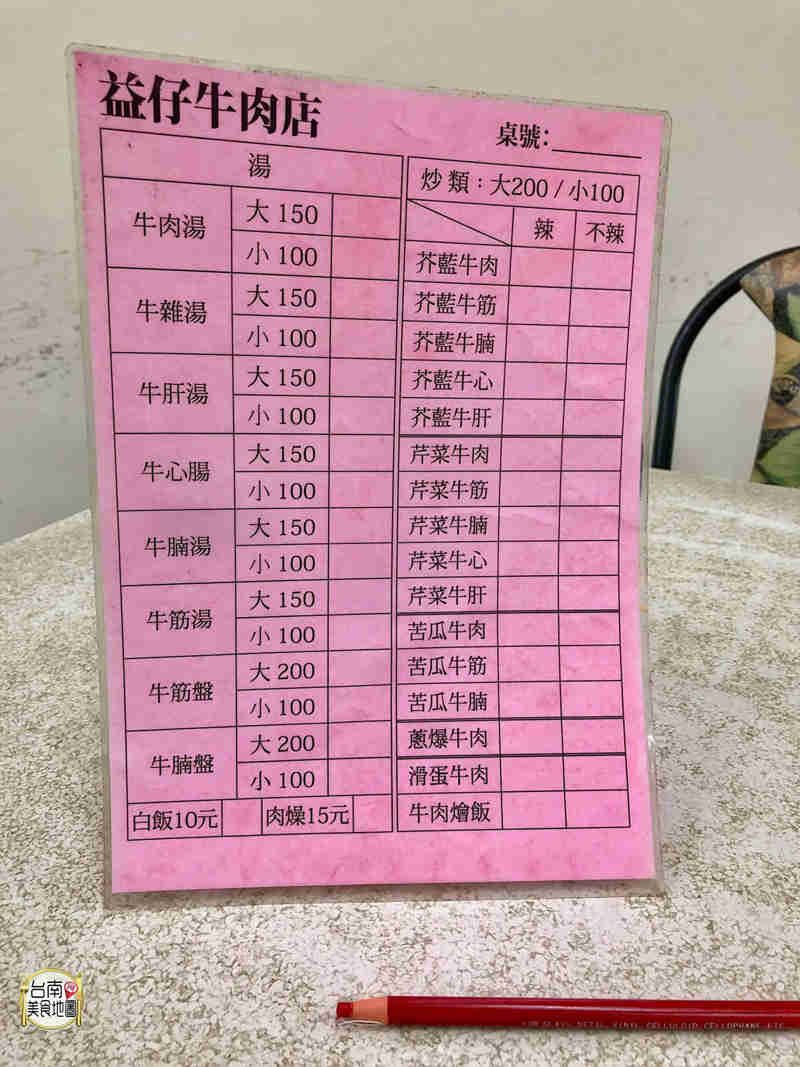 益仔牛肉店
桌號：
湯
牛肉湯 大 150
小 100
牛雜湯 大 150
小 100
牛肝湯 大 150
小 100
牛心腸 大 150
小 100
牛腩湯 大 150
小 100
牛筋湯 大 150
小 100
牛筋盤 大 200
小 100
牛腩盤 大 200
小 100
白飯10元 肉燥15元
炒類：大200 / 小100
辣 不辣
芥藍牛肉
芥藍牛筋
芥藍牛腩
芥藍牛心
芥藍牛肝
芹菜牛肉
芹菜牛筋
芹菜牛腩
芹菜牛心
芹菜牛肝
苦瓜牛肉
苦瓜牛筋
苦瓜牛腩
蔥爆牛肉
滑蛋牛肉
牛肉燴飯
台南
美食地圖
METAL, VINYL, CELLULOID, CELLOPHANE ETC